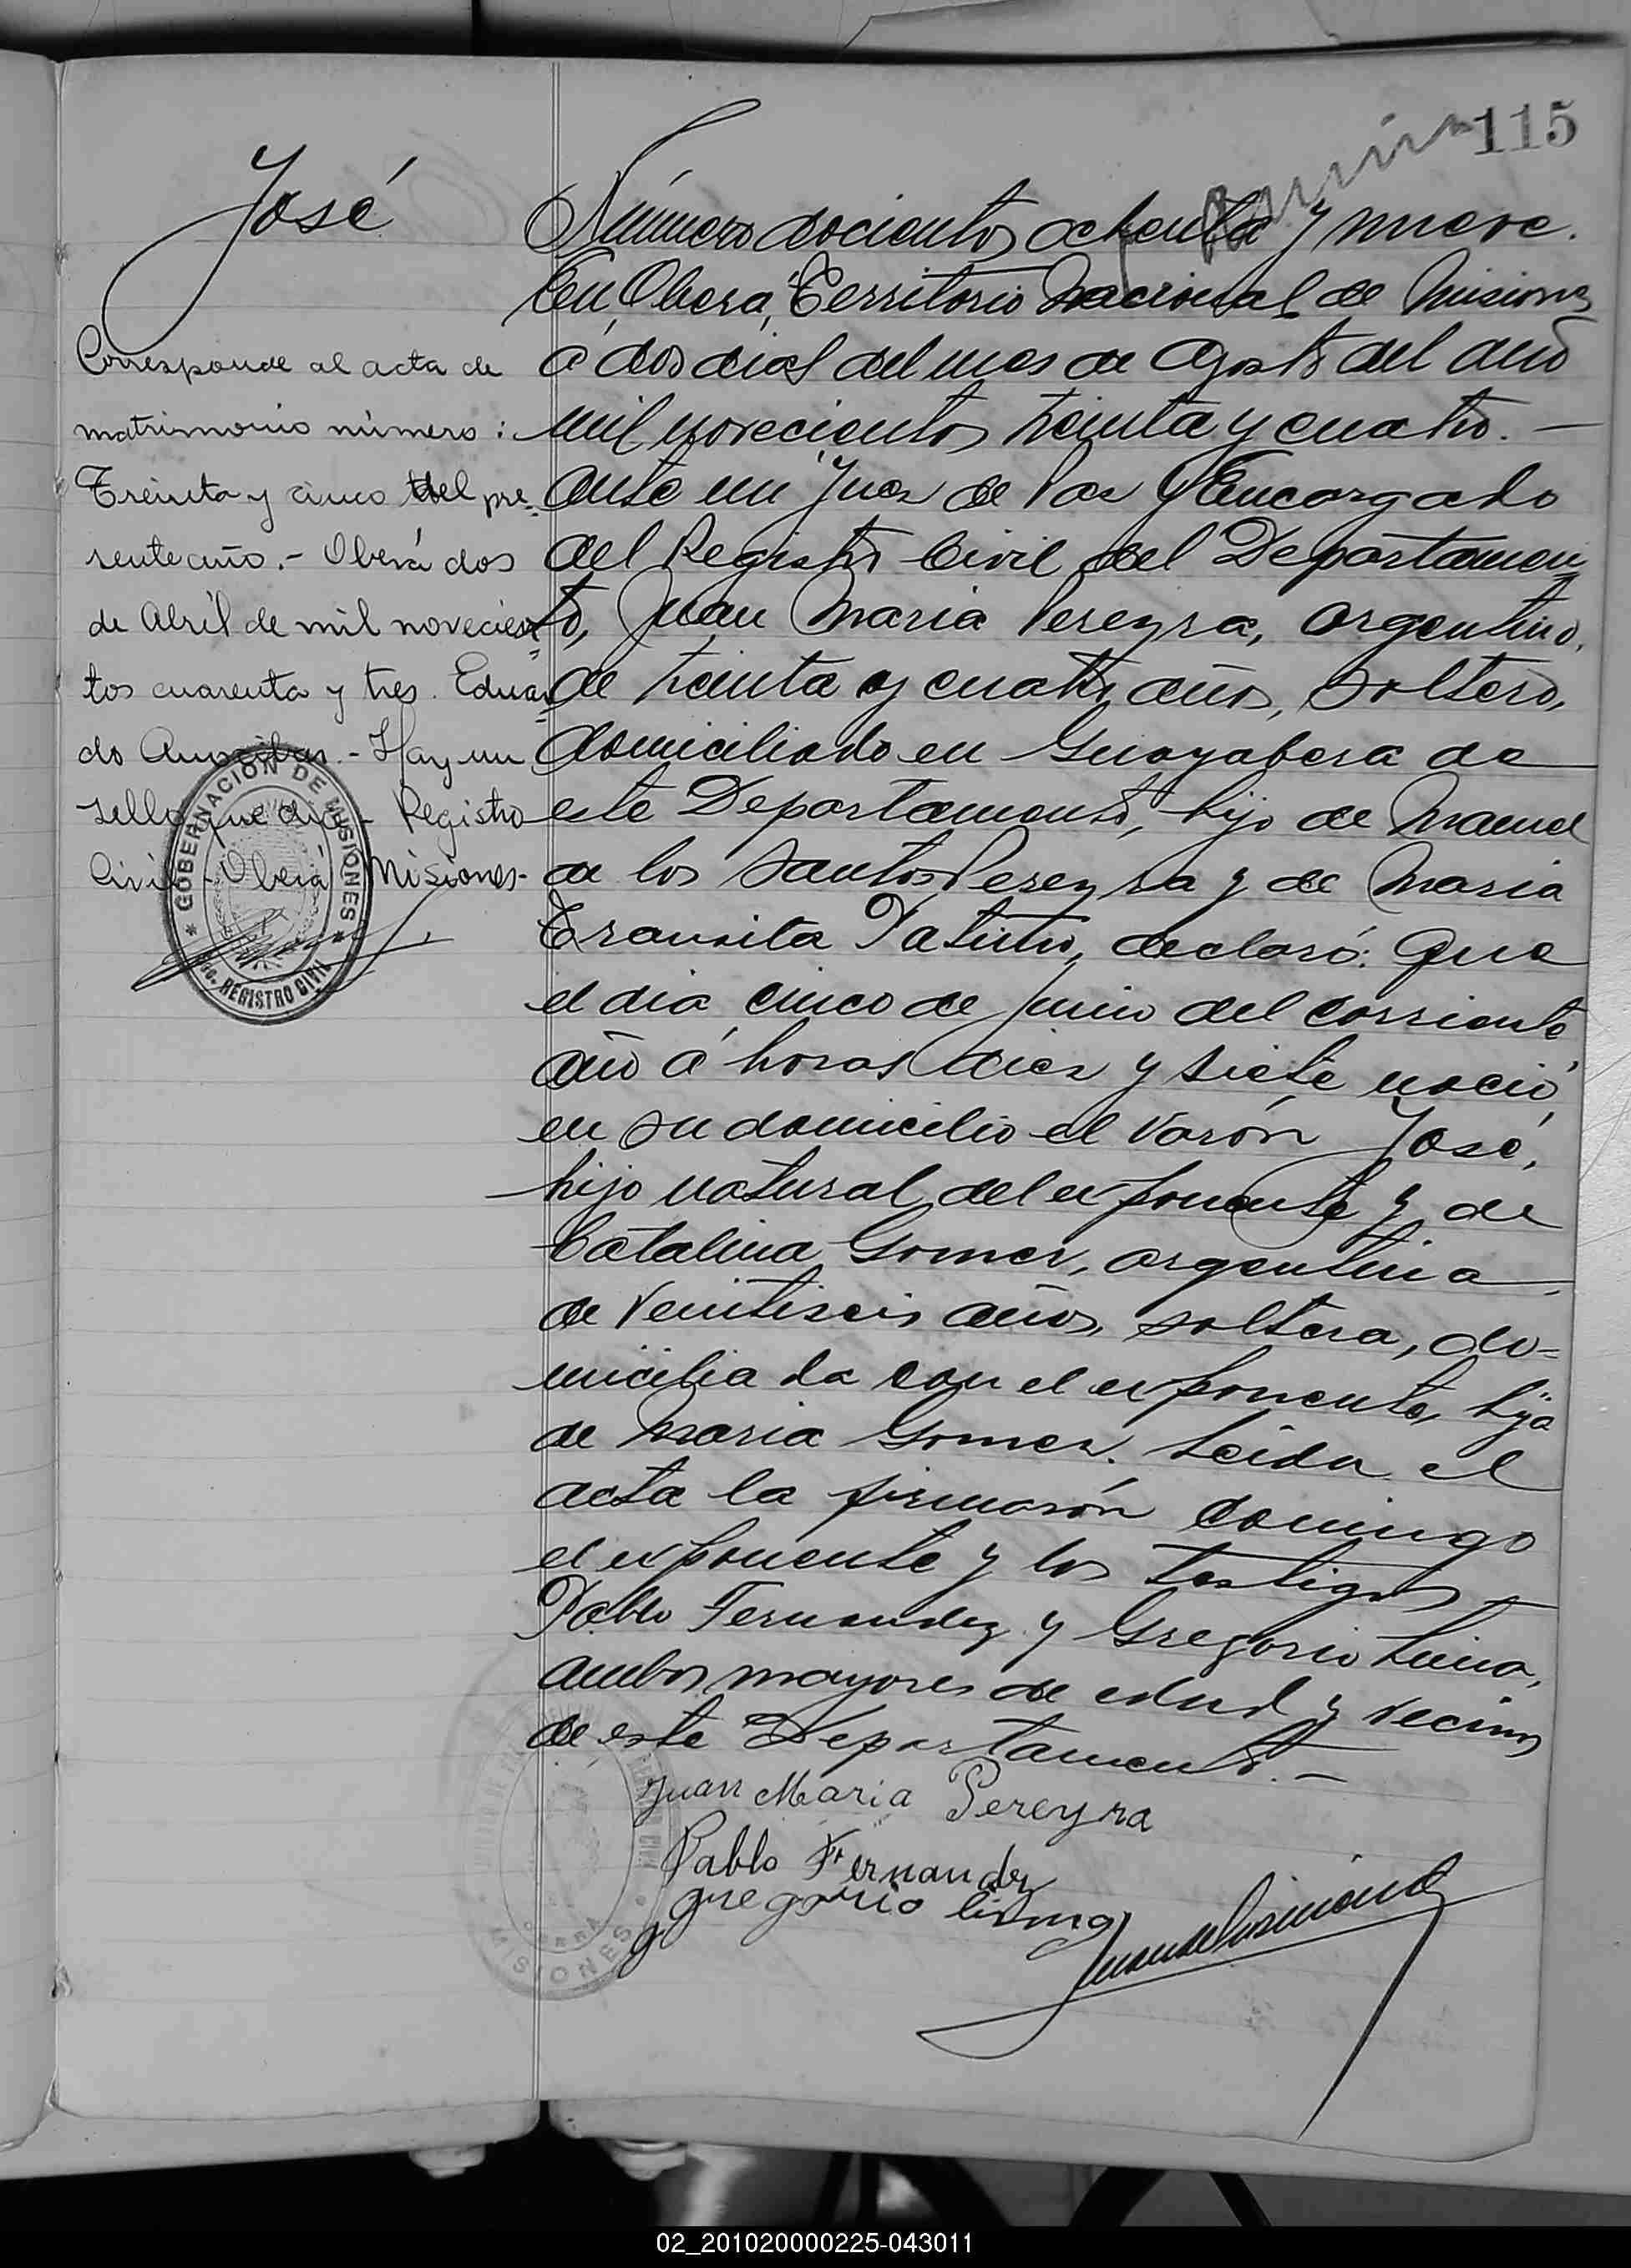 115
José
Corresponde al acta de
matrimonio número:
Treinta y cinco del pre-
sente año.- Oberá dos
de Abril de mil novecien-
tos cuarenta y tres. Eduar-
do - Hay un
sello que dice - Registro
Civil - Oberá Misiones-
GOBERNACION DE MISIONES
REGISTRO CIVIL
Número docientos ochenta y nueve.
En Obera, Territorio Nacional de Misiones
a dos dias del mes de Agosto del año
mil novecientos treinta y cuatro.-
Ante mi Juez de Paz y Encargado
del Registro Civil del Departamen-
to, Juan Maria Pereyra, argentino,
de treinta y cuatro años, soltero,
domiciliado en Guayabera de
este Departamento, hijo de Manuel
de los Santos Pereyra y de Maria
Transita declaró: Que
el dia cinco de Junio del corriente
año á horas diez y siete nació
en su domicilio el varón José,
hijo natural del exponente y de
Catalina Gomez, argentina
de veintiseis años, soltera, do=
miciliada con el exponente, hija
de Maria Gomez. Leida el
acta la firmarón conmigo
el exponente y los testigos
Pablo Fernandez y Gregorio Lima,
ambos mayores de edad y vecinos
de este Departamento.-
Juan Maria Pereyra
Pablo Fernandez
gregorio lima
MISIONES
02_201020000225-043011